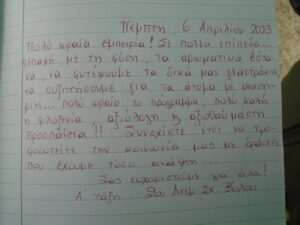 Πέμπτη, 6 Απριλίου 2023
Πολύ ωραία εμπειρία! Σε πολλά επίπεδα...
επαφή με τη φύση, τα αρωματικά βότα-
να, να φυτέψουμε τα δικά μας γλαστράκια
να συζητήσουμε για τα άτομα με αναπη-
ρίες... Πολύ ωραίο το πρόγραμμα, πολύ καλή
η φιλοξενία, αξιόλογη & αξιοθαύμαστη
προσπάθεια!! Συνεχίστε έτσι να τρο-
φοδοτείτε την κοινωνία μας με δράσεις
που έχουμε τόσο ανάγκη...
Σας ευχαριστούμε για όλα!
Α' τάξη 2ο Δημ. Σχ. Βόλου